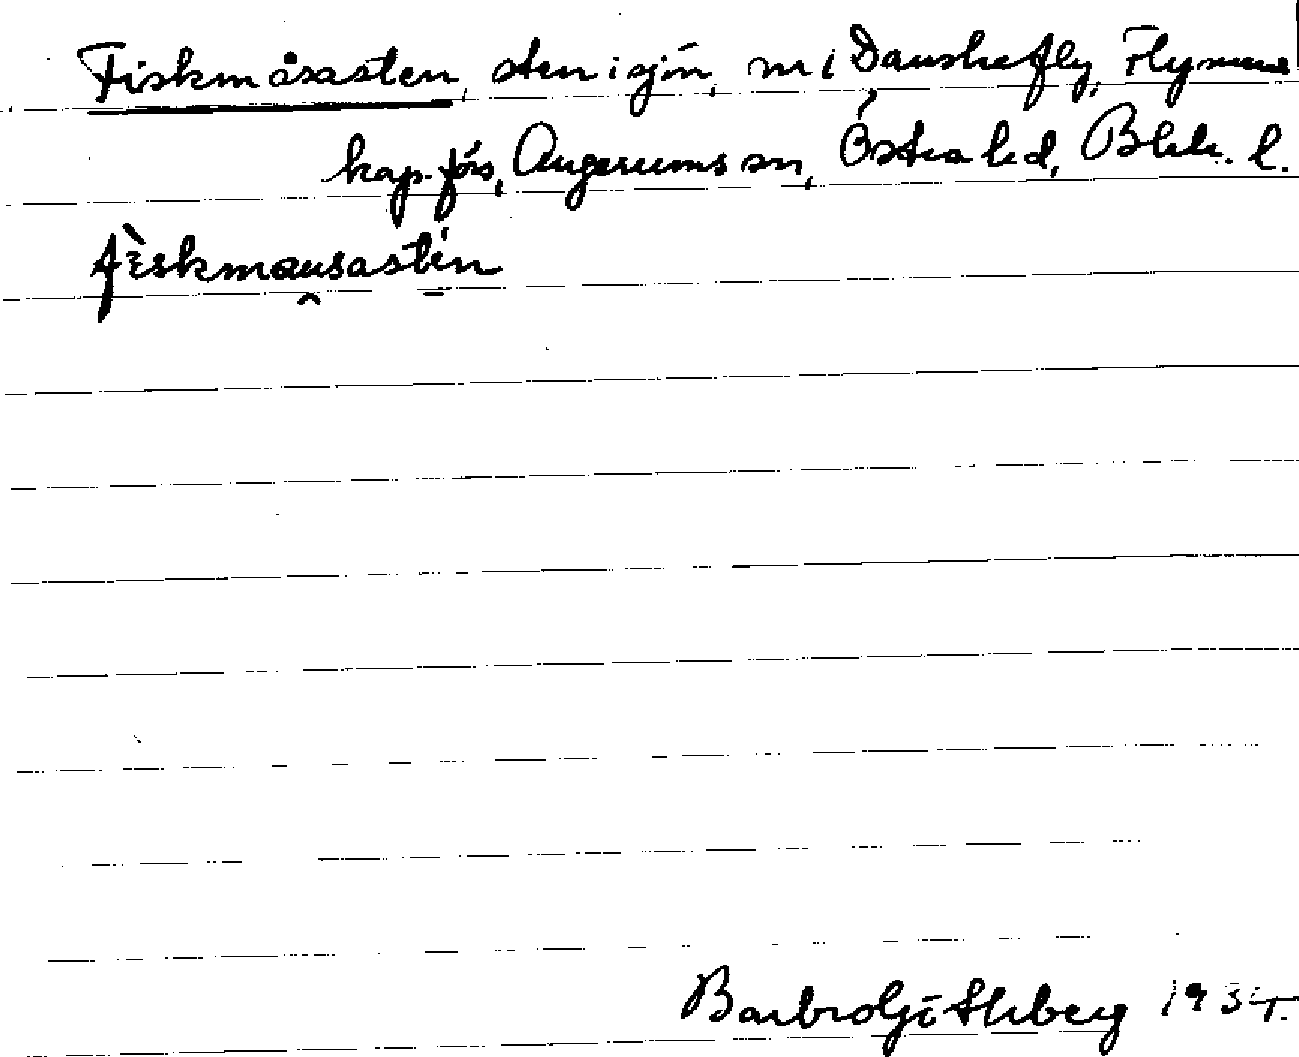 Fiskmåsasten, sten i sjön, nr i Danskefly, Flymens
kap.förs, Augerums sn, Östra hd, Blek. l.
fɛ̀skmausastén
Barbro 1934.